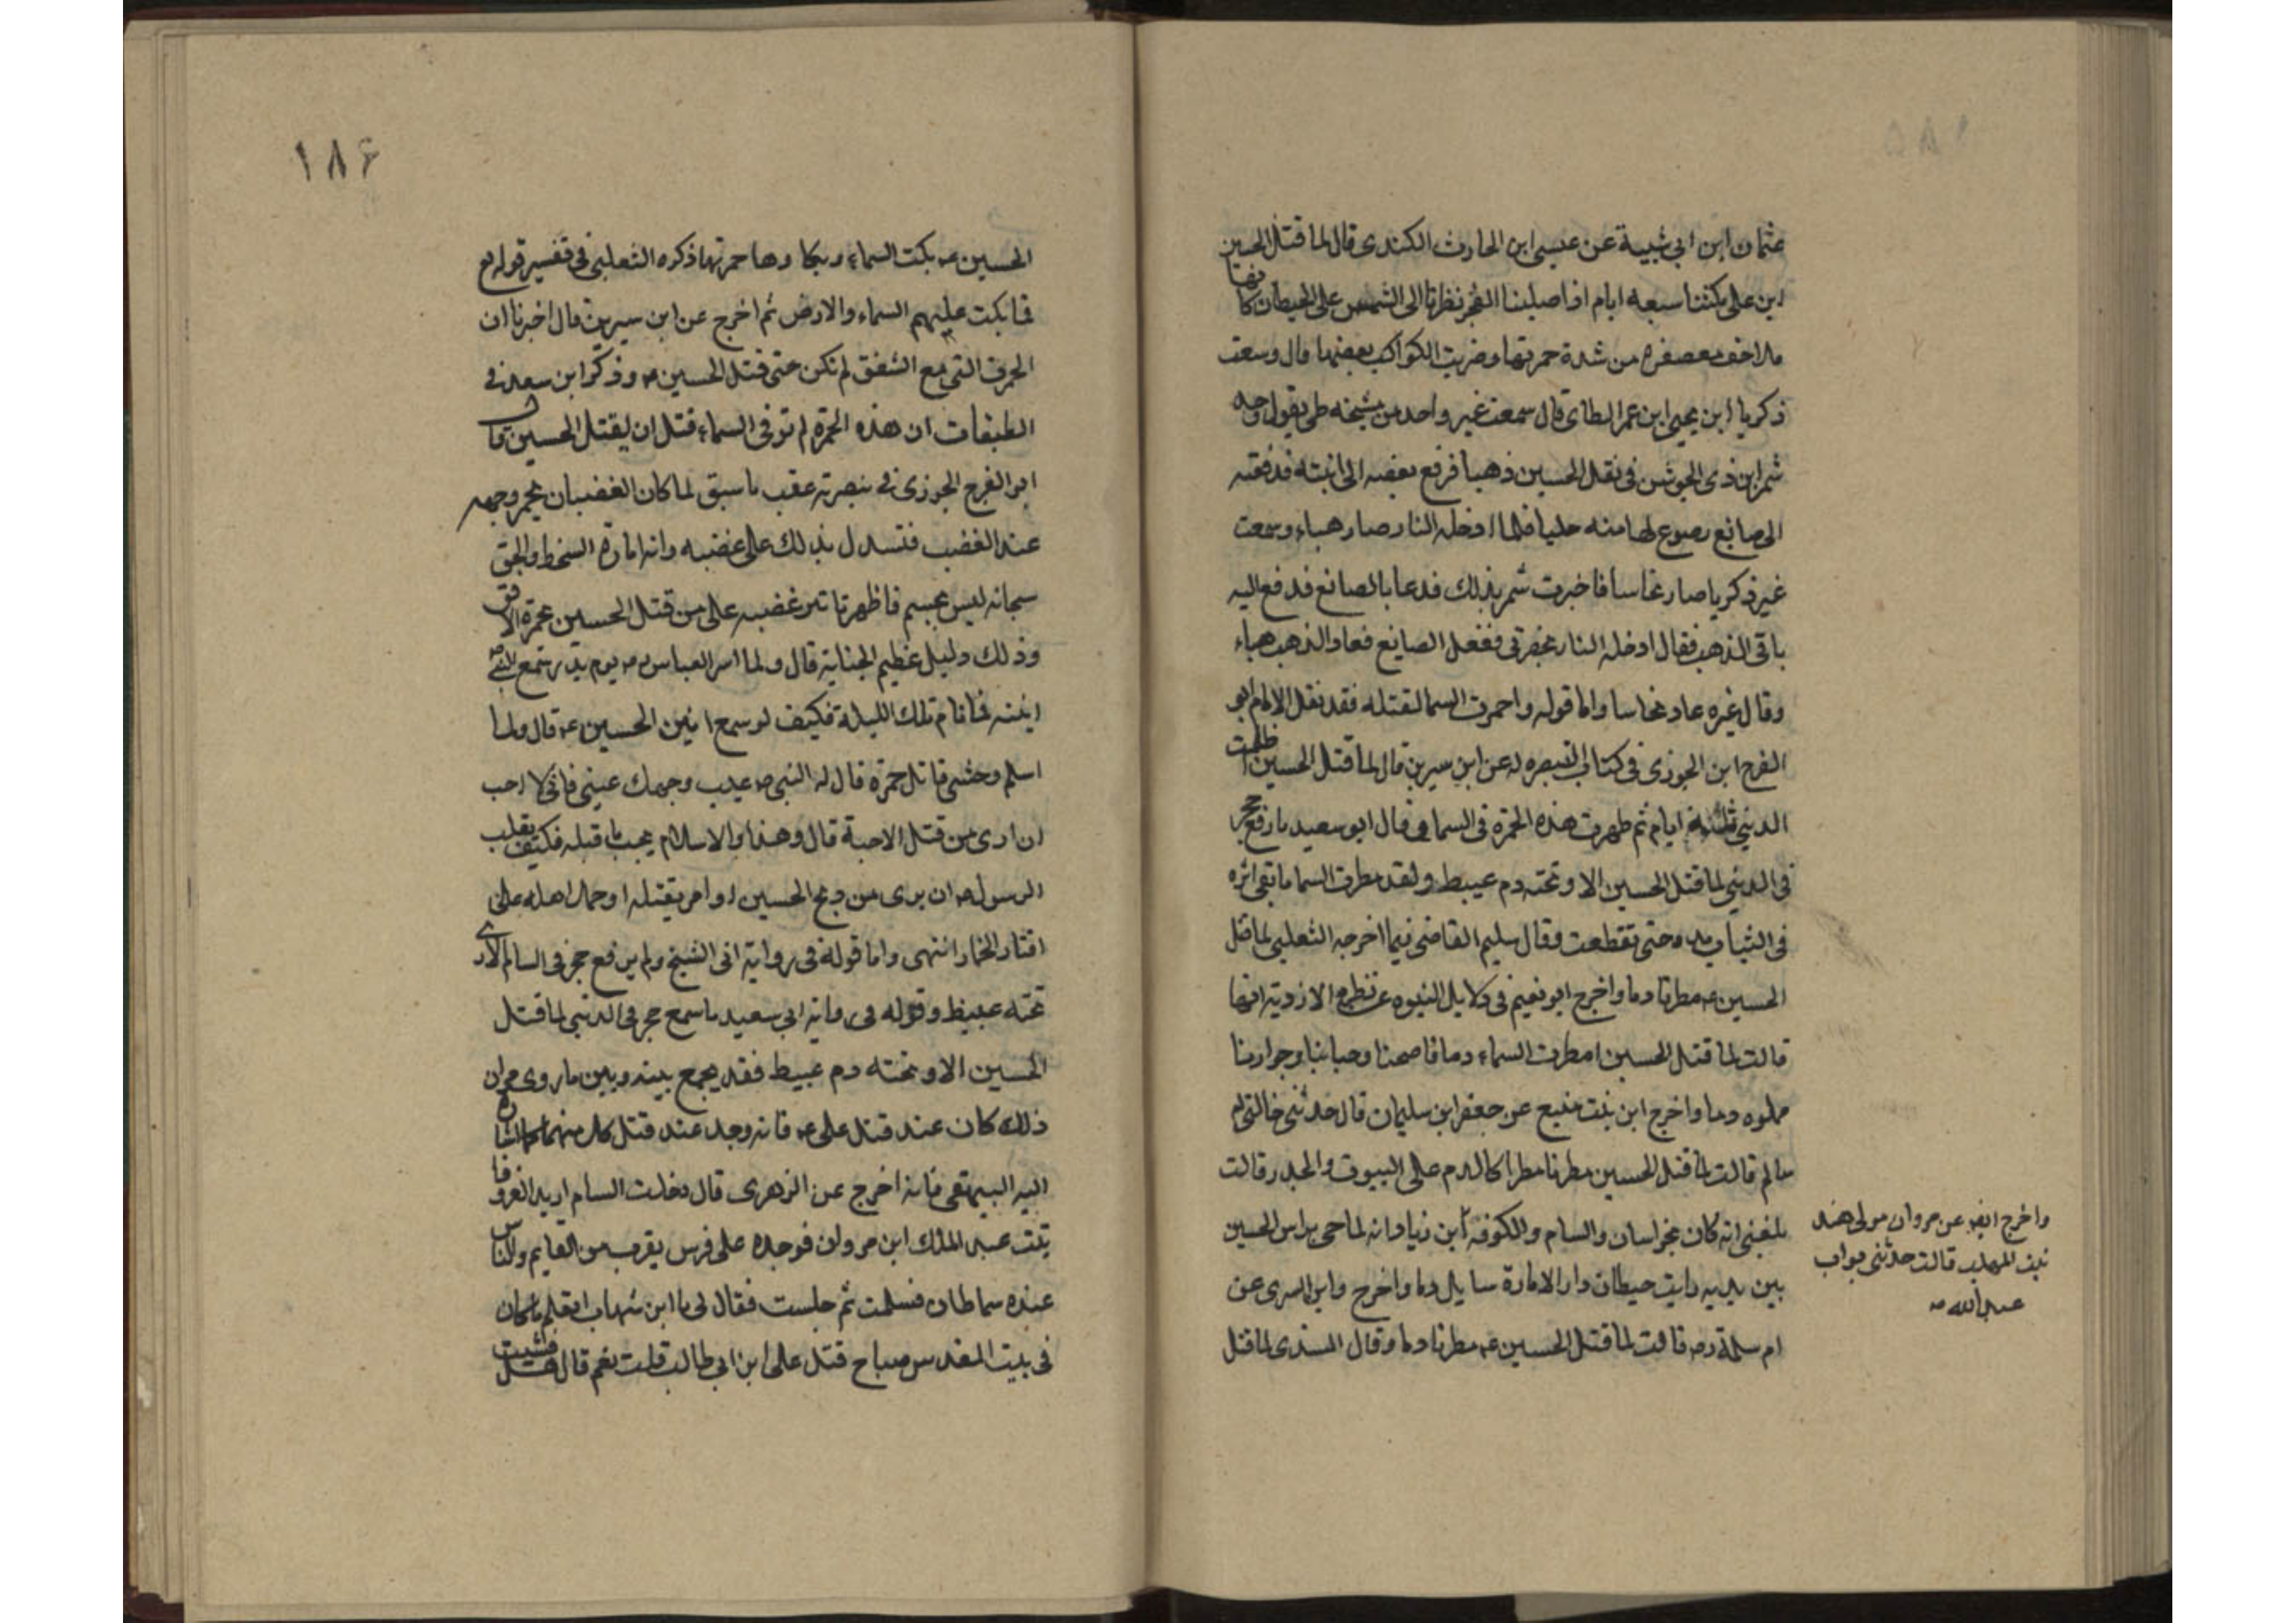 عثمان ابن ابي شيبة عن عيسى ابن الحارث الكندى قال لما قتل الحسين
ابن على مكثنا سبعه ايام اذا صلينا الفجر نظرنا الى الشمس على الحيطان كانها
ملاحف معصفره من شدة حمرتها وضربت الكواكب بعضها قال وسمعت
ذكريا ابن يحيى ابن عمر الطائ قال سمعت غير واحد من مشيخه طى يقول وجد
شمر ابن ذى الجوشن فى ثقل الحسين ذهبا فرفع بعضه الى ابنته فدفعته
الى صانع يصوع لها منه حليا فلما ادخله النار صار هباء وسمعت
غير ذكريا صار نحاسا فاخبرت شمر بذلك فدعا بالصانع فدفع اليه
باقى الذهب فقال ادخله النار بحضرتى ففعل الصايع فعاد الذهب هباء
وقال غيره عاد نحاسا واما قوله واحمرت السما لقتله فقد نقل الامام ابو
الفرج ابن الجوزى فى كتاب التبصره له عن ابن سيرين قال لما قتل الحسين اظلمت
الدنيى ثلثة ايام ثم ظهرت هذه الحمرة فى السما وقال ابو سعيد ما رفع حجر
فى الدنيى لما قتل الحسين الا وتحته دم عبيط ولقد مطرت السما ما بقى اثره
فى الثياب مده حتى تقطعت وقال سليم القاضى فيما اخرجه الثعلبى لما قتل
الحسين عه مطرنا دما واخرج ابو نعيم فى دلايل النبوه عن نظره الازدية انها
قالت لما قتل الحسين امطرت السماء دما فاصحنا وحبابنا وجرارنا
مملوه دما واخرج ابن بنت منيع عن جعفر ابن سليمان قال حدثنى خالتى ام
سالم قالت لما قتل الحسين مطرنا مطرا كالدم على البيوت والجدر قالت
بلغنى انه كان بخراسان والسام والكوفة ابن زياد انه لما جى براس الحسين
بين يديه رايت حيطان دار الامارة سايل دما واخرج وابن السرى عن
ام سلمة رضه قالت لما قتل الحسين عه مطرنا دما وقال السدى لما قتل
واخرج ايضه عن مروان مولى هند
بنت المهلب قالت حدثنى بواب
عبد الله صه
۱۸۶
الحسين عه بكت السماء وبكاوها حمرتها ذكره الثعلبى فى تفسير قوله تع
فما بكت عليهم السماء والارض ثم اخرج عن ابن سيرين قال اخبرنا ان
الحمرة التى مع الشفق لم تكن حتى قتل الحسين عه وذكر ابن سعد فى
الطبقات ان هذه الحمرة لم تر فى السماء قتل ان يقتل الحسين قال
ابو الفرج الجوزى فى تبصرته عقب ما سبق لما كان الغضبان يحمر وجهه
عند الغضب فتسدل بذلك على غضبه وانه امارة السخط والحق
سبحانه ليس بجسم فاظهر تاثير غضبه على من قتل الحسين بحمرة الافق
وذلك دليل عظيم الجناية قال ولما اسر العباس رضه يوم بدر سمع النبى صه
انينه فما نام تلك الليلة فكيف لو سمع انين الحسين عه قال ولما
اسلم وحشى قاتل حمزة قال له النبى صه غيب وجهك عينى فانى لا احب
ان ارى من قتل الاحبة قال وهذا والاسلام يجب ما قبله فكيف بقلب
الرسول صه ان يرى من ذبح الحسين او امر بقتله او حمل اهله على
اقتاد الخمار انتهى واما قوله فى رواية انى الشيخ ولم يرفع حجر فى السام الا رى
تحته عبيظ وقوله فى رواية ابى سعيد ما سمع حجر فى الدنيى لما قتل
الحسين الا وتحته دم عبيط فقد يجمع بينه وبين ما روى من ان
ذلك كان عند قتل على عه فانه وجد عند قتل كل منهما كما اشاره
اليه البيهقى فانه اخرج عن الزهرى قال دخلت السام اريد الغزو فا
تيت عبد الملك ابن مروان فوجده على فرس يقرب من القايم والناس
عنده سماطان فسلمت ثم جلست فقال لى يا ابن شهاب اتعلم ما كان
فى بيت المقدس صباح قتل على ابن ابى طالب قلت نعم قال هلم فقمت